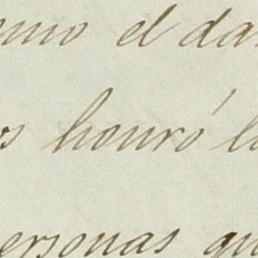 mo el da
os honró l
personas qu